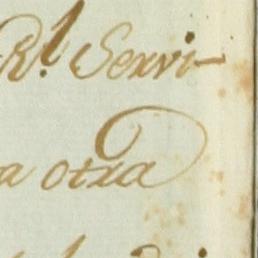 Rl. Servi-
a otra